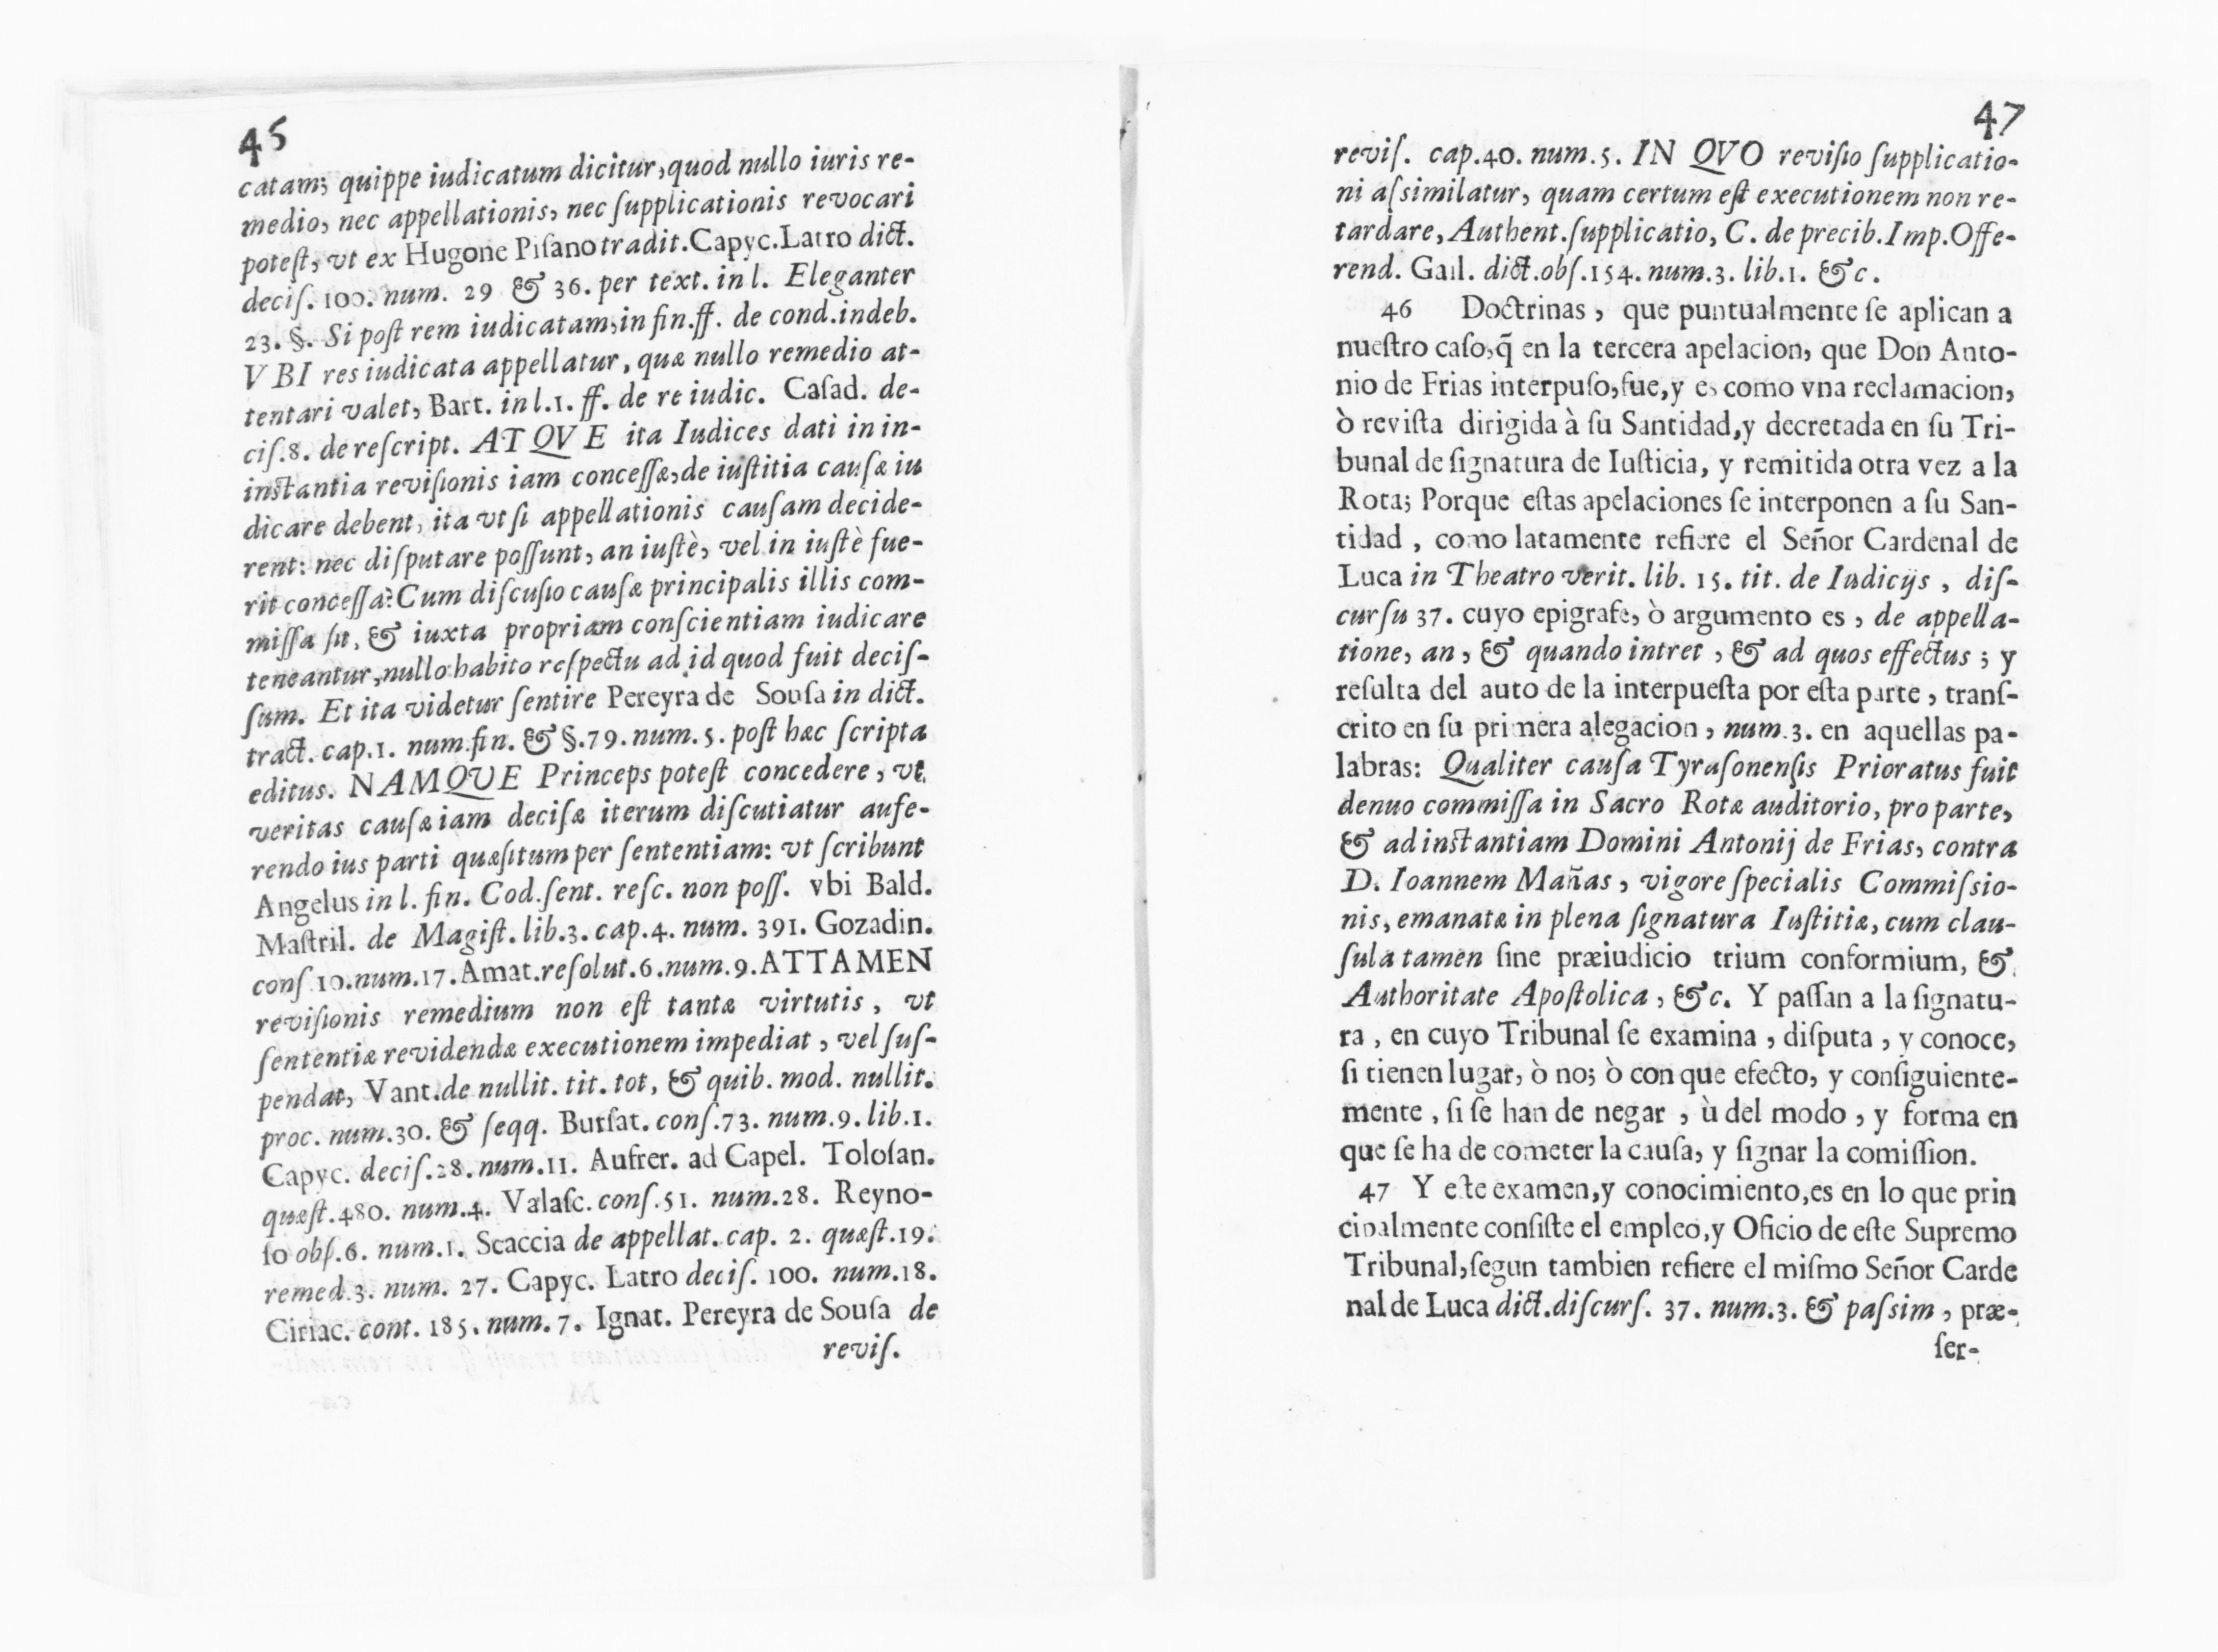 45
catam; quippe iudicatum dicitur, quod nullo iuris re-
medio, nec appellationis, nec ſupplicationis revocari
poteſt, vt ex Hugone Piſano tradit. Capyc. Latro dict.
deciſ. 100. num. 29 & 36. per text. in l. Eleganter
23. §. Si poſt rem iudicatam, in fin. ff. de cond. indeb.
VBI res iudicata appellatur, quæ nullo remedio at-
tentari valet, Bart. in l. 1. ff. de re iudic. Caſad. de-
ciſ. 8. de reſcript. ATQVE ita Iudices dati in in-
instantia reviſionis iam conceſſæ, de iuſtitia cauſæ iu
dicare debent, ita vt ſi appellationis cauſam decide-
rent: nec diſputare poſſunt, an iuſtè, vel in iuſtè fue-
rit conceſſa: Cum diſcuſio cauſæ principalis illis com-
miſſa ſit, & iuxta propriam conſcientiam iudicare
teneantur, nullo habito reſpectu ad id quod fuit deciſ-
ſum. Et ita videtur ſentire Pereyra de Souſa in dict.
tract. cap. 1. num. fin. & §. 79. num. 5. poſt hæc ſcripta
editus. NAMQUE Princeps poteſt concedere, vt
veritas cauſæ iam deciſæ iterum diſcutiatur aufe-
rendo ius parti quæſitum per ſententiam: vt ſcribunt
Angelus in l. fin. Cod. ſent. reſc. non poſſ. vbi Bald.
Maſtril. de Magiſt. lib. 3. cap. 4. num. 391. Gozadin.
conſ. 10. num. 17. Amat. reſolut. 6. num. 9. ATTAMEN
reviſionis remedium non eſt tantæ virtutis, vt
ſententiæ revidendæ executionem impediat, vel ſuſ-
pendat, Vant. de nullit. tit. tot, & quib. mod. nullit.
proc. num. 30. & ſeqq. Burſat. conſ. 73. num. 9. lib. 1.
Capyc. deciſ. 28. num. 11. Aufrer. ad Capel. Toloſan.
quæſt. 480. num. 4. Valaſc. conſ. 51. num. 28. Reyno-
ſo obſ. 6. num. 1. Scaccia de appellat. cap. 2. quæſt. 19.
remed. 3. num. 27. Capyc. Latro deciſ. 100. num. 18.
Ciriac. cont. 185. num. 7. Ignat. Pereyra de Souſa de
reviſ.
47
reviſ. cap. 40. num. 5. IN QVO reviſio ſupplicatio-
ni aſsimilatur, quam certum eſt executionem non re-
tardare, Authent. ſupplicatio, C. de precib. Imp. Offe-
rend. Gail. dict. obſ. 154. num. 3. lib. 1. &c.
46 Doctrinas, que puntualmente ſe aplican a
nueſtro caſo, q̃ en la tercera apelacion, que Don Anto-
nio de Frias interpuſo, fue, y es como vna reclamacion,
ò reviſta dirigida à ſu Santidad, y decretada en ſu Tri-
bunal de ſignatura de Iuſticia, y remitida otra vez a la
Rota; Porque eſtas apelaciones ſe interponen a ſu San-
tidad, como latamente refiere el Señor Cardenal de
Luca in Theatro verit. lib. 15. tit. de Iudicijs, diſ-
curſu 37. cuyo epigrafe, ò argumento es, de appella-
tione, an, & quando intret, & ad quos effectus; y
reſulta del auto de la interpueſta por eſta parte, tranſ-
crito en ſu primera alegacion, num. 3. en aquellas pa-
labras: Qualiter cauſa Tyraſonenſis Prioratus fuit
denuo commiſſa in Sacro Rotæ auditorio, pro parte,
& ad instantiam Domini Antonij de Frias, contra
D. Ioannem Mañas, vigore ſpecialis Commiſsio-
nis, emanatæ in plena ſignatura Iuſtitiæ, cum clau-
ſula tamen ſine præiudicio trium conformium, &
Authoritate Apoſtolica, &c. Y paſſan a la ſignatu-
ra, en cuyo Tribunal ſe examina, diſputa, y conoce,
ſi tienen lugar, ò no; ò con que efecto, y conſiguiente-
mente, ſi ſe han de negar, ù del modo, y forma en
que ſe ha de cometer la cauſa, y ſignar la comiſſion.
47 Y eſte examen, y conocimiento, es en lo que prin
cipalmente conſiſte el empleo, y Oficio de eſte Supremo
Tribunal, ſegun tambien refiere el miſmo Señor Carde
nal de Luca dict. diſcurſ. 37. num. 3. & paſsim, præ-
ſer-